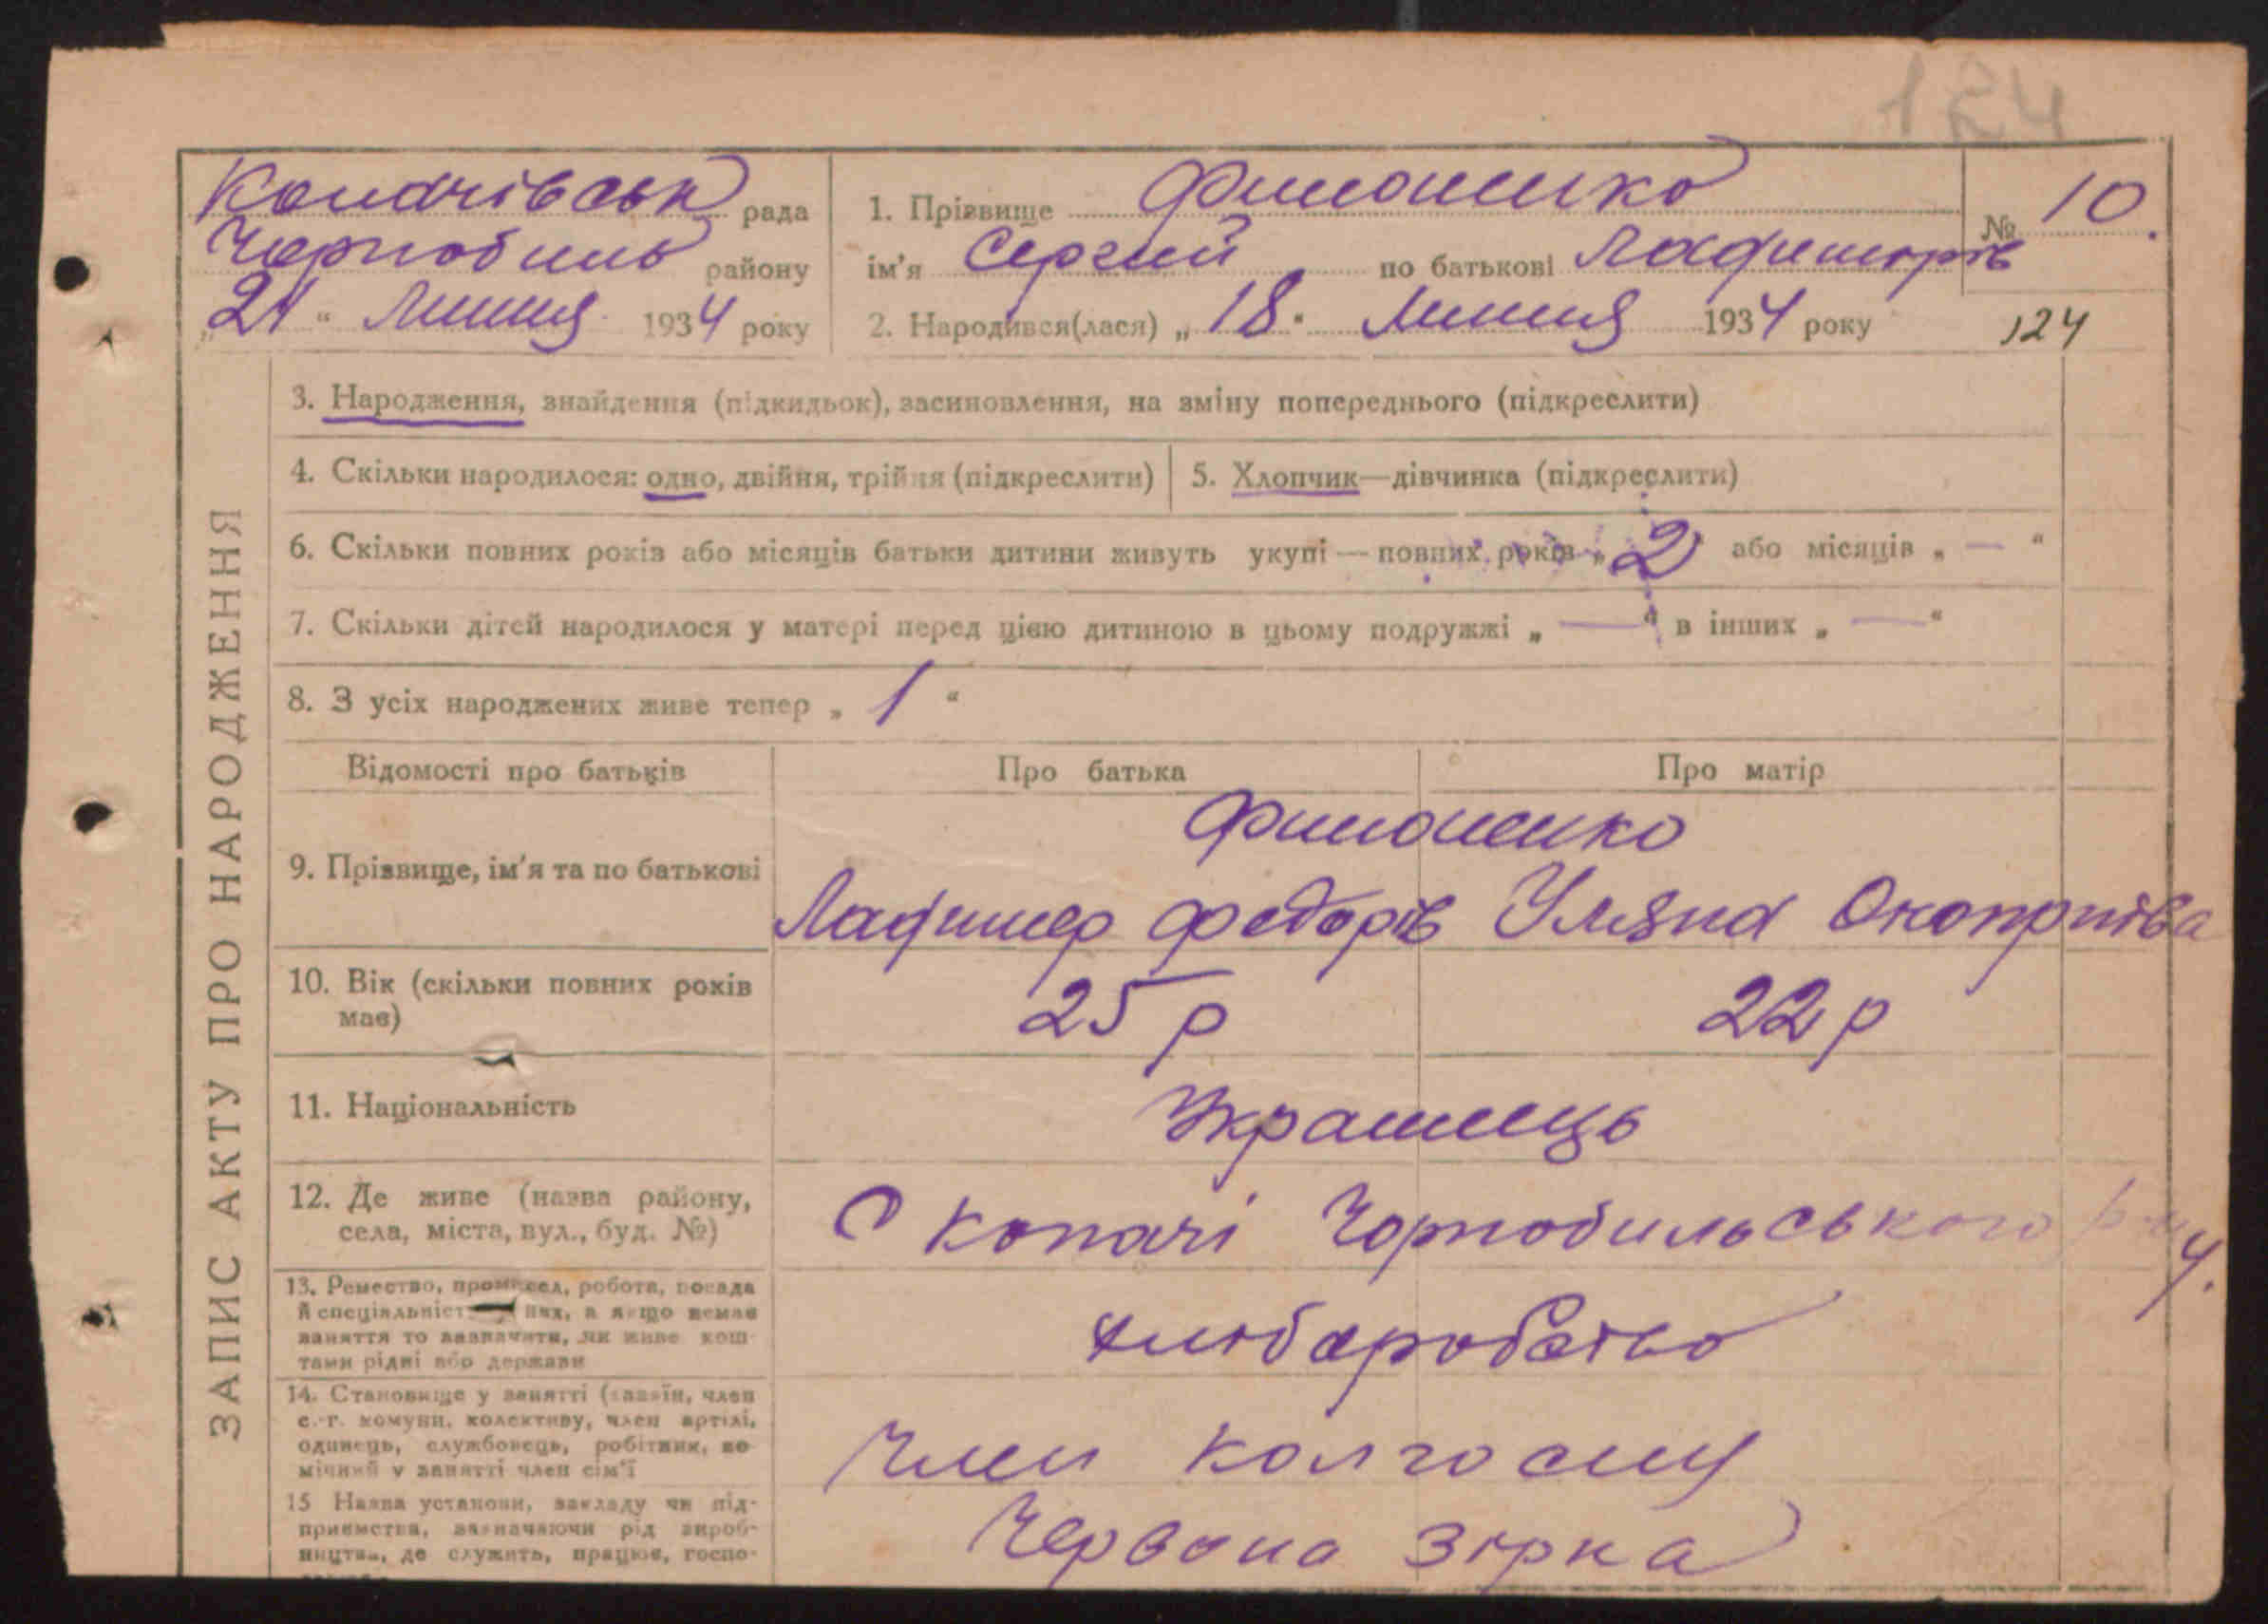 124
Копачівськ рада
Чорнобиль району
„21“ Липня 1934 року
1. Прізвище Филоненко
ім'я Сергій по батькові Лафимирів
№ 10.
2. Народився(лася) „18“ Липня 1934 року
124
ЗАПИС АКТУ ПРО НАРОДЖЕННЯ
3. Народження, знайдення (підкидьок), засиновлення, на зміну попереднього (підкреслити)
4. Скільки народилося: одно, двійня, трійня (підкреслити)
5. Хлопчик—дівчинка (підкреслити)
6. Скільки повних років або місяців батьки дитини живуть укупі — повних років „2 або місяців „—“
7. Скільки дітей народилося у матері перед цією дитиною в цьому подружжі „—“ в інших „—“
8. З усіх народжених живе тепер „1“
Відомості про батьків
Про батька
Про матір
9. Прізвище, ім'я та по батькові
Филоненко
Федорів Уляна
10. Вік (скільки повних років
має)
25 р
22 р
11. Національність
Українець
12. Де живе (назва району,
села, міста, вул., буд. №)
С Копачі Чорнобильського р-ну
13. Ремество, промисел, робота, посада
й спеціальність них, а якщо немає
заняття то зазначити, як живе кош-
тами рідні або держави
хліборобство
14. Становище у занятті (хазяїн, член
с.-г. комуни, колективу, член артілі,
одинець, службовець, робітник, по-
мічний у занятті член сім'ї
Член колгоспу
15 Назва установи, закладу чи під-
приємства, зазначаючи рід вироб-
ництва, де служить, працює, госпо-
Червона зірка